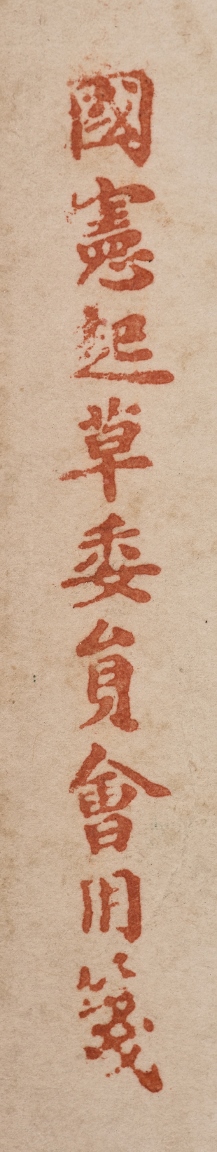 國憲起草委員會用箋